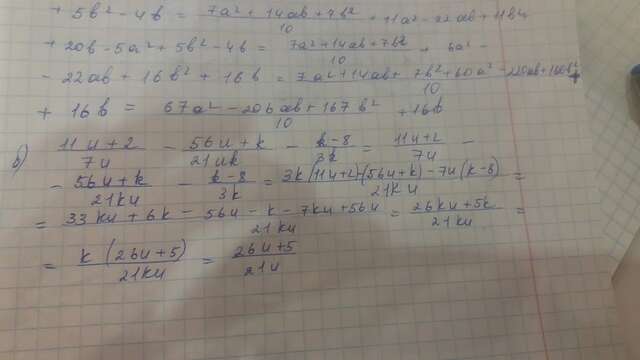 + 5b² - 4b = (7a² + 14ab + 7b²)/10 + 11a² - 22ab + 11b²
+ 20b - 5a² + 5b² - 4b = (7a² + 14ab + 7b²)/10 + 6a² -
- 22ab + 16b² + 16b = (7a² + 14ab + 7b² + 60a² - 220ab + 160b²)/10 +
+ 16b = (67a² - 206ab + 167b²)/10 + 16b
б) (11u + 2)/7u - (56u + k)/21uk - (k - 8)/3k = (11u + 2)/7u -
- (56u + k)/21ku - (k - 8)/3k = (3k(11u + 2) - (56u + k) - 7u(k - 8))/21ku =
= (33ku + 6k - 56u - k - 7ku + 56u)/21ku = (26ku + 5k)/21ku =
= k(26u + 5)/21ku = (26u + 5)/21u